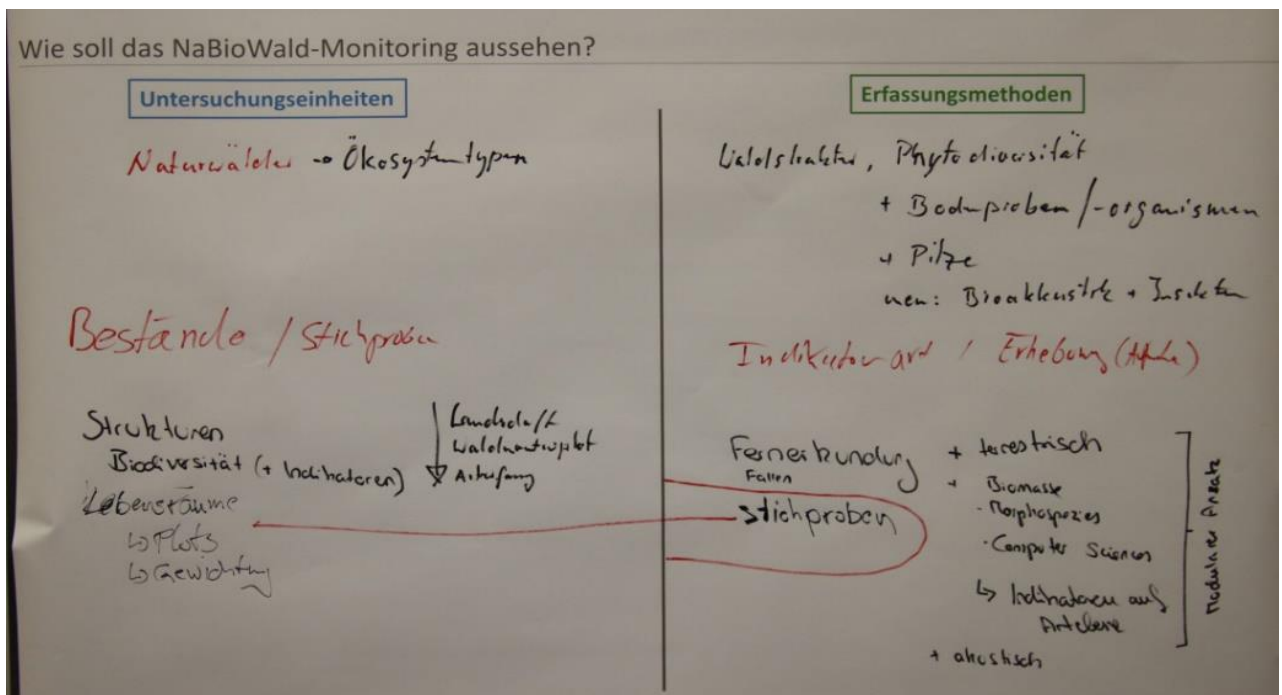 Wie soll das NaBioWald-Monitoring aussehen?
Untersuchungseinheiten
Naturwälder → Ökosystemtypen
Bestände / Stichproben
Strukturen
Biodiversität (+ Indikatoren)
Lebensräume
↳ Plots
↳ Gewichtung
Landschaft
Erfassungsmethoden
Waldstruktur, Phytodiversität
+ Bodenproben/-organismen
+ Pilze
neu: Bioakkustik + Insekten
Indikatorart / Erhebung
Fernerkundung
Fallen
Stichproben
+ terrestrisch
+ Biomasse
- Morphospezies
- Computer Sciences
↳ Indikatoren auf
Artebene
+ akustisch
Modularer Ansatz